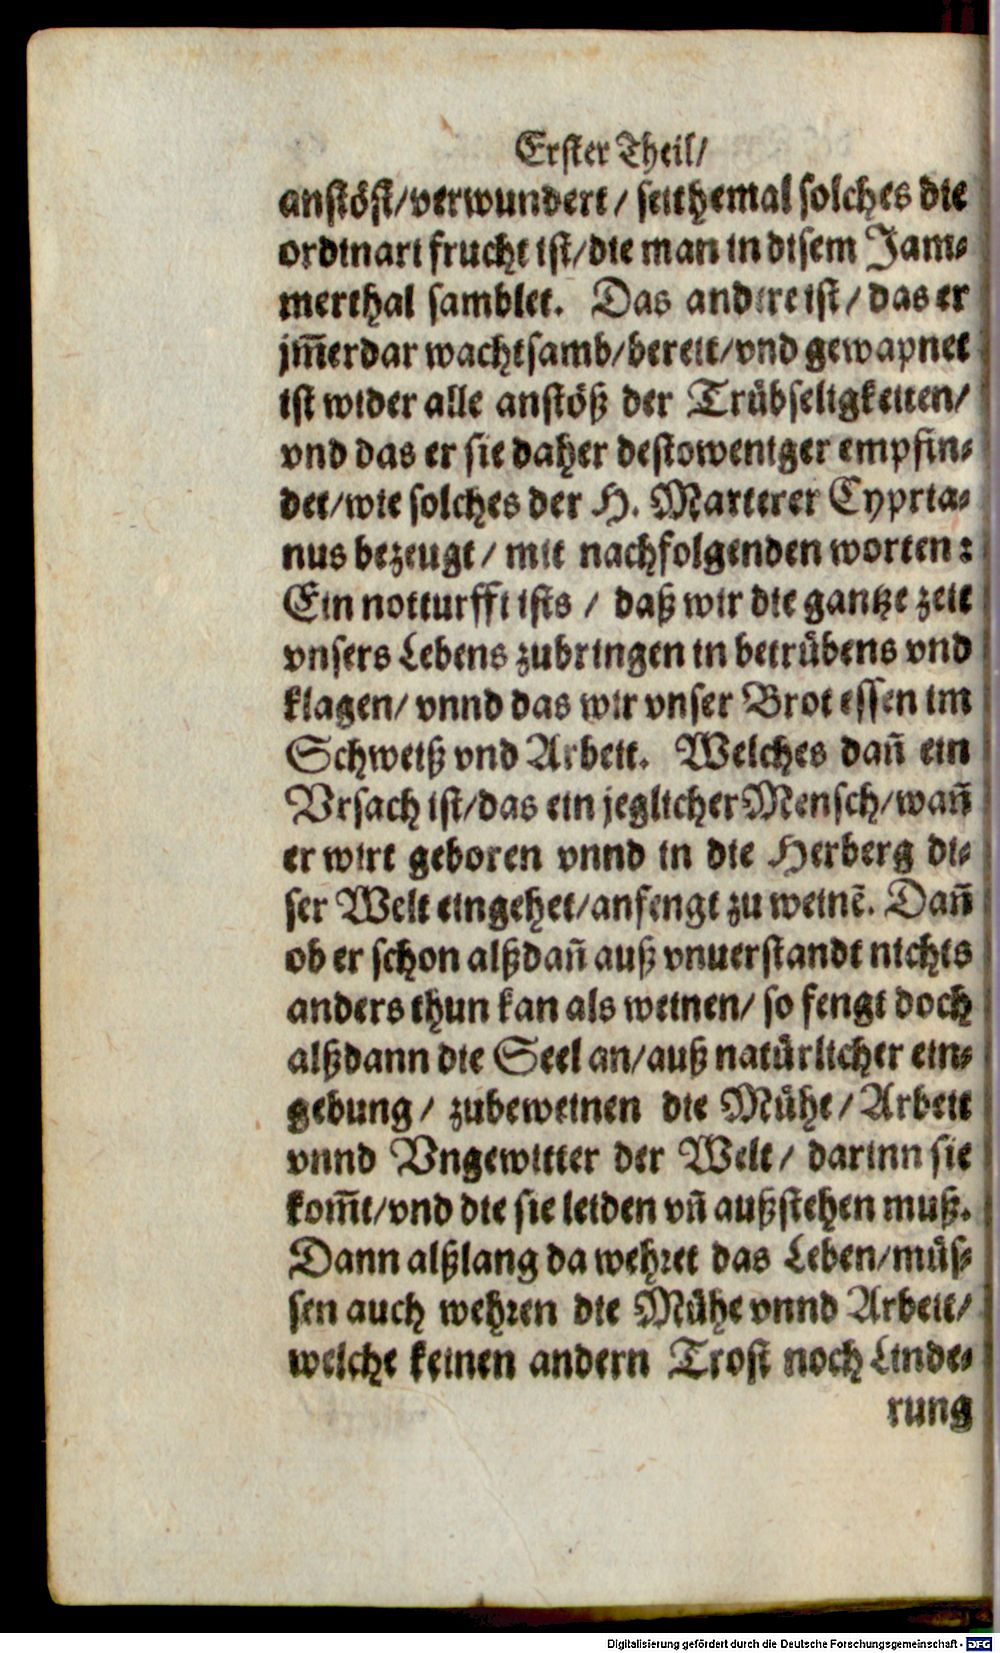 Erster Theil/
anstöst/verwundert/ seithemal solches die
ordinari frucht ist/die man in disem Jam⸗
merthal samblet. Das andere ist/ das er
jm̃erdar wachtsamb/bereit/vnd gewapnet
ist wider alle anstöß der Trübseligkeiten/
vnd das er sie daher destoweniger empfin⸗
det/wie solches der H. Marterer Cypria⸗
nus bezeugt/ mit nachfolgenden worten:
Ein notturfft ists / daß wir die gantze zeit
vnsers Lebens zubringen in betrübens vnd
klagen/ vnnd das wir vnser Brot essen im
Schweiß vnd Arbeit. Welches dañ ein
Vrsach ist/das ein jeglicher Mensch/wañ
er wirt geboren vnnd in die Herberg di⸗
ser Welt eingehet/anfengt zu weinẽ. Dañ
ob er schon alßdañ auß vnuerstandt nichts
anders thun kan als weinen/ so fengt doch
alßdann die Seel an/auß natürlicher ein⸗
gebung/ zubeweinen die Mühe/ Arbeit
vnnd Vngewitter der Welt/ darinn sie
kom̃t/vnd die sie leiden vñ außstehen muß.
Dann alßlang da wehret das Leben/müs⸗
sen auch wehren die Mühe vnnd Arbeit/
welche keinen andern Trost noch Linde⸗
rung
Digitalisierung gefördert durch die Deutsche Forschungsgemeinschaft - DFG